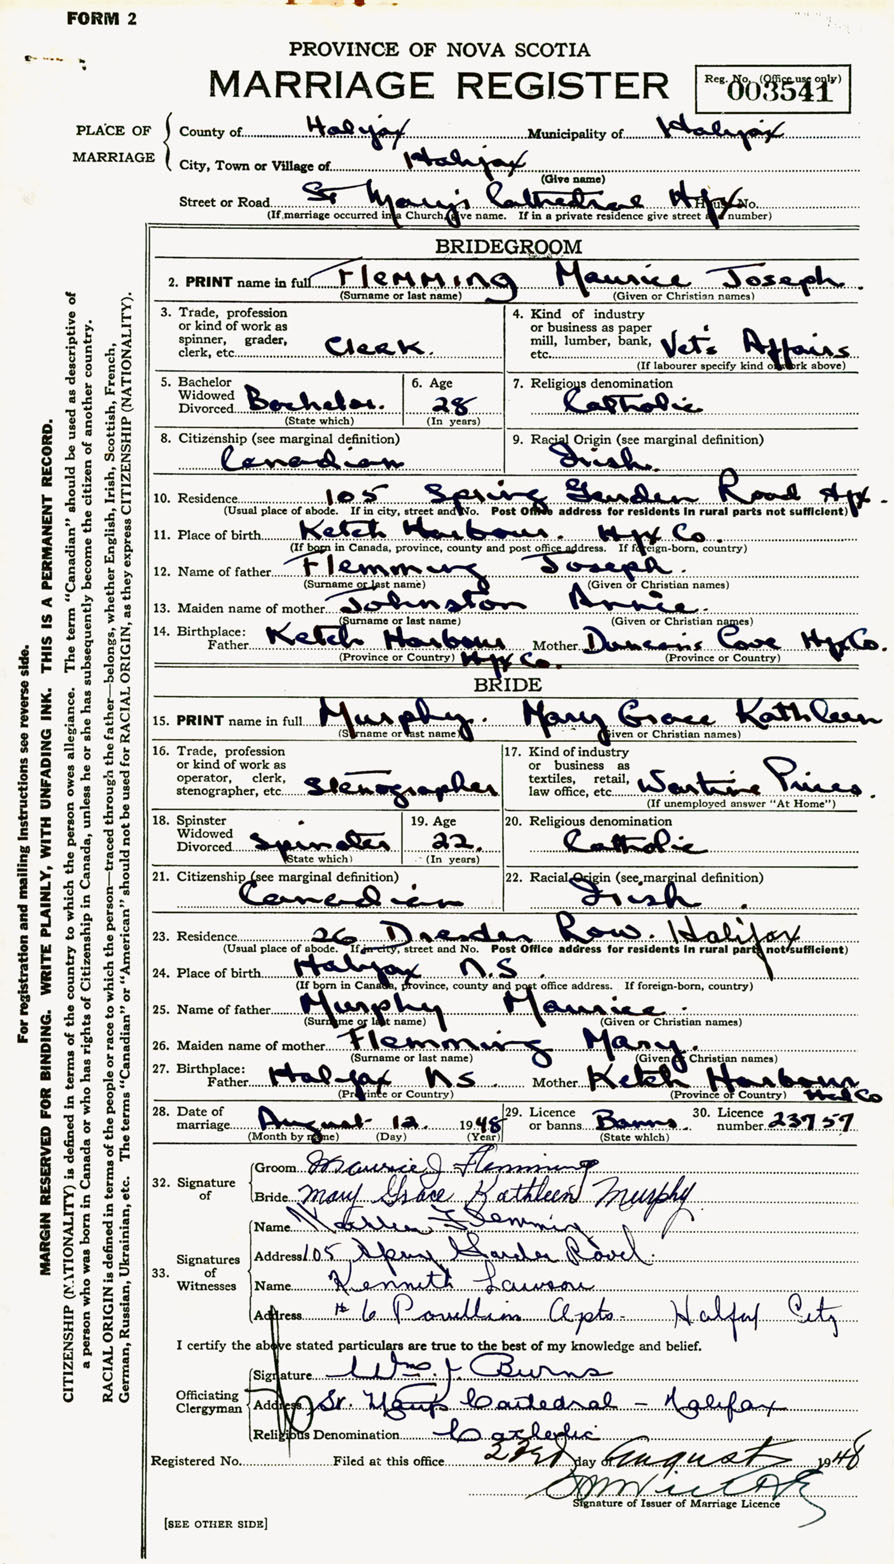 FORM 2
PROVINCE OF NOVA SCOTIA
MARRIAGE REGISTER
Reg. No. (Office use only)
003541
PLACE OF MARRIAGE
County of Halifax Municipality of Halifax
City, Town or Village of Halifax
(Give name)
Street or Road St Mary's Cathedral Hfx House No.
(If marriage occurred in a Church, give name. If in a private residence give street and number)
BRIDEGROOM
2. PRINT name in full Flemming Maurice Joseph
(Surname or last name) (Given or Christian names)
3. Trade, profession or kind of work as spinner, grader, clerk, etc. Clerk.
4. Kind of industry or business as paper mill, lumber, bank, etc. Vet's Affairs
(If labourer specify kind of work above)
5. Bachelor Widowed Divorced Bachelor.
(State which)
6. Age 28
(In years)
7. Religious denomination
Catholic
8. Citizenship (see marginal definition)
Canadian
9. Racial Origin (see marginal definition)
Irish.
10. Residence 105 Spring Garden Road Hfx.
(Usual place of abode. If in city, street and No. Post Office address for residents in rural parts not sufficient)
11. Place of birth Ketch Harbour. Hfx Co.
(If born in Canada, province, county and post office address. If foreign-born, country)
12. Name of father Flemming Joseph.
(Surname or last name) (Given or Christian names)
13. Maiden name of mother Johnston Annie.
(Surname or last name) (Given or Christian names)
14. Birthplace: Father Ketch Harbour Hfx Co. Mother Duncan's Cove Hfx Co.
(Province or Country) (Province or Country)
BRIDE
15. PRINT name in full Murphy. Mary Grace Kathleen
(Surname or last name) (Given or Christian names)
16. Trade, profession or kind of work as operator, clerk, stenographer, etc. Stenographer
17. Kind of industry or business as textiles, retail, law office, etc. Wartime Prices.
(If unemployed answer "At Home")
18. Spinster Widowed Divorced Spinster
(State which)
19. Age 22.
(In years)
20. Religious denomination
Catholic
21. Citizenship (see marginal definition)
Canadian
22. Racial Origin (see marginal definition)
Irish
23. Residence 26 Dresden Row. Halifax
(Usual place of abode. If in city, street and No. Post Office address for residents in rural parts not sufficient)
24. Place of birth Halifax N.S.
(If born in Canada, province, county and post office address. If foreign-born, country)
25. Name of father Murphy Maurice.
(Surname or last name) (Given or Christian names)
26. Maiden name of mother Flemming Mary.
(Surname or last name) (Given or Christian names)
27. Birthplace: Father Halifax NS. Mother Ketch Harbour
(Province or Country) (Province or Country)
28. Date of marriage August 12. 1948
(Month by name) (Day) (Year)
29. Licence or banns Banns.
(State which)
30. Licence number 23757
32. Signature of
Groom Maurice J Flemming
Bride Mary Grace Kathleen Murphy
33. Signatures of Witnesses
Name Flemming
Address 105 Spring Garden Road.
Name Kenneth Lawson
Address # 6 Apts- Halifax City
I certify the above stated particulars are true to the best of my knowledge and belief.
Officiating Clergyman
Signature Wm. J Burns
Address St. Mary's Cathedral - Halifax
Religious Denomination Catholic
Registered No. Filed at this office 23rd day of August 1948
Signature of Issuer of Marriage Licence
[SEE OTHER SIDE]
For registration and mailing instructions see reverse side.
MARGIN RESERVED FOR BINDING. WRITE PLAINLY, WITH UNFADING INK. THIS IS A PERMANENT RECORD.
CITIZENSHIP (NATIONALITY) is defined in terms of the country to which the person owes allegiance. The term "Canadian" should be used as descriptive of
a person who was born in Canada or who has rights of Citizenship in Canada, unless he or she has subsequently become the citizen of another country.
RACIAL ORIGIN is defined in terms of the people or race to which the person—traced through the father—belongs, whether English, Irish, Scottish, French,
German, Russian, Ukrainian, etc. The terms "Canadian" or "American" should not be used for RACIAL ORIGIN, as they express CITIZENSHIP (NATIONALITY).